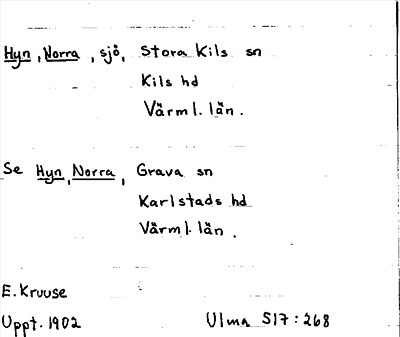 Hyn, Norra, sjö, Stora Kils sn
Kils hd
Värml. län.
Se Hyn, Norra, Grava sn
Karlstads hd
Värml. län.
E. Kruuse
Uppt. 1902
Ulma 517:268